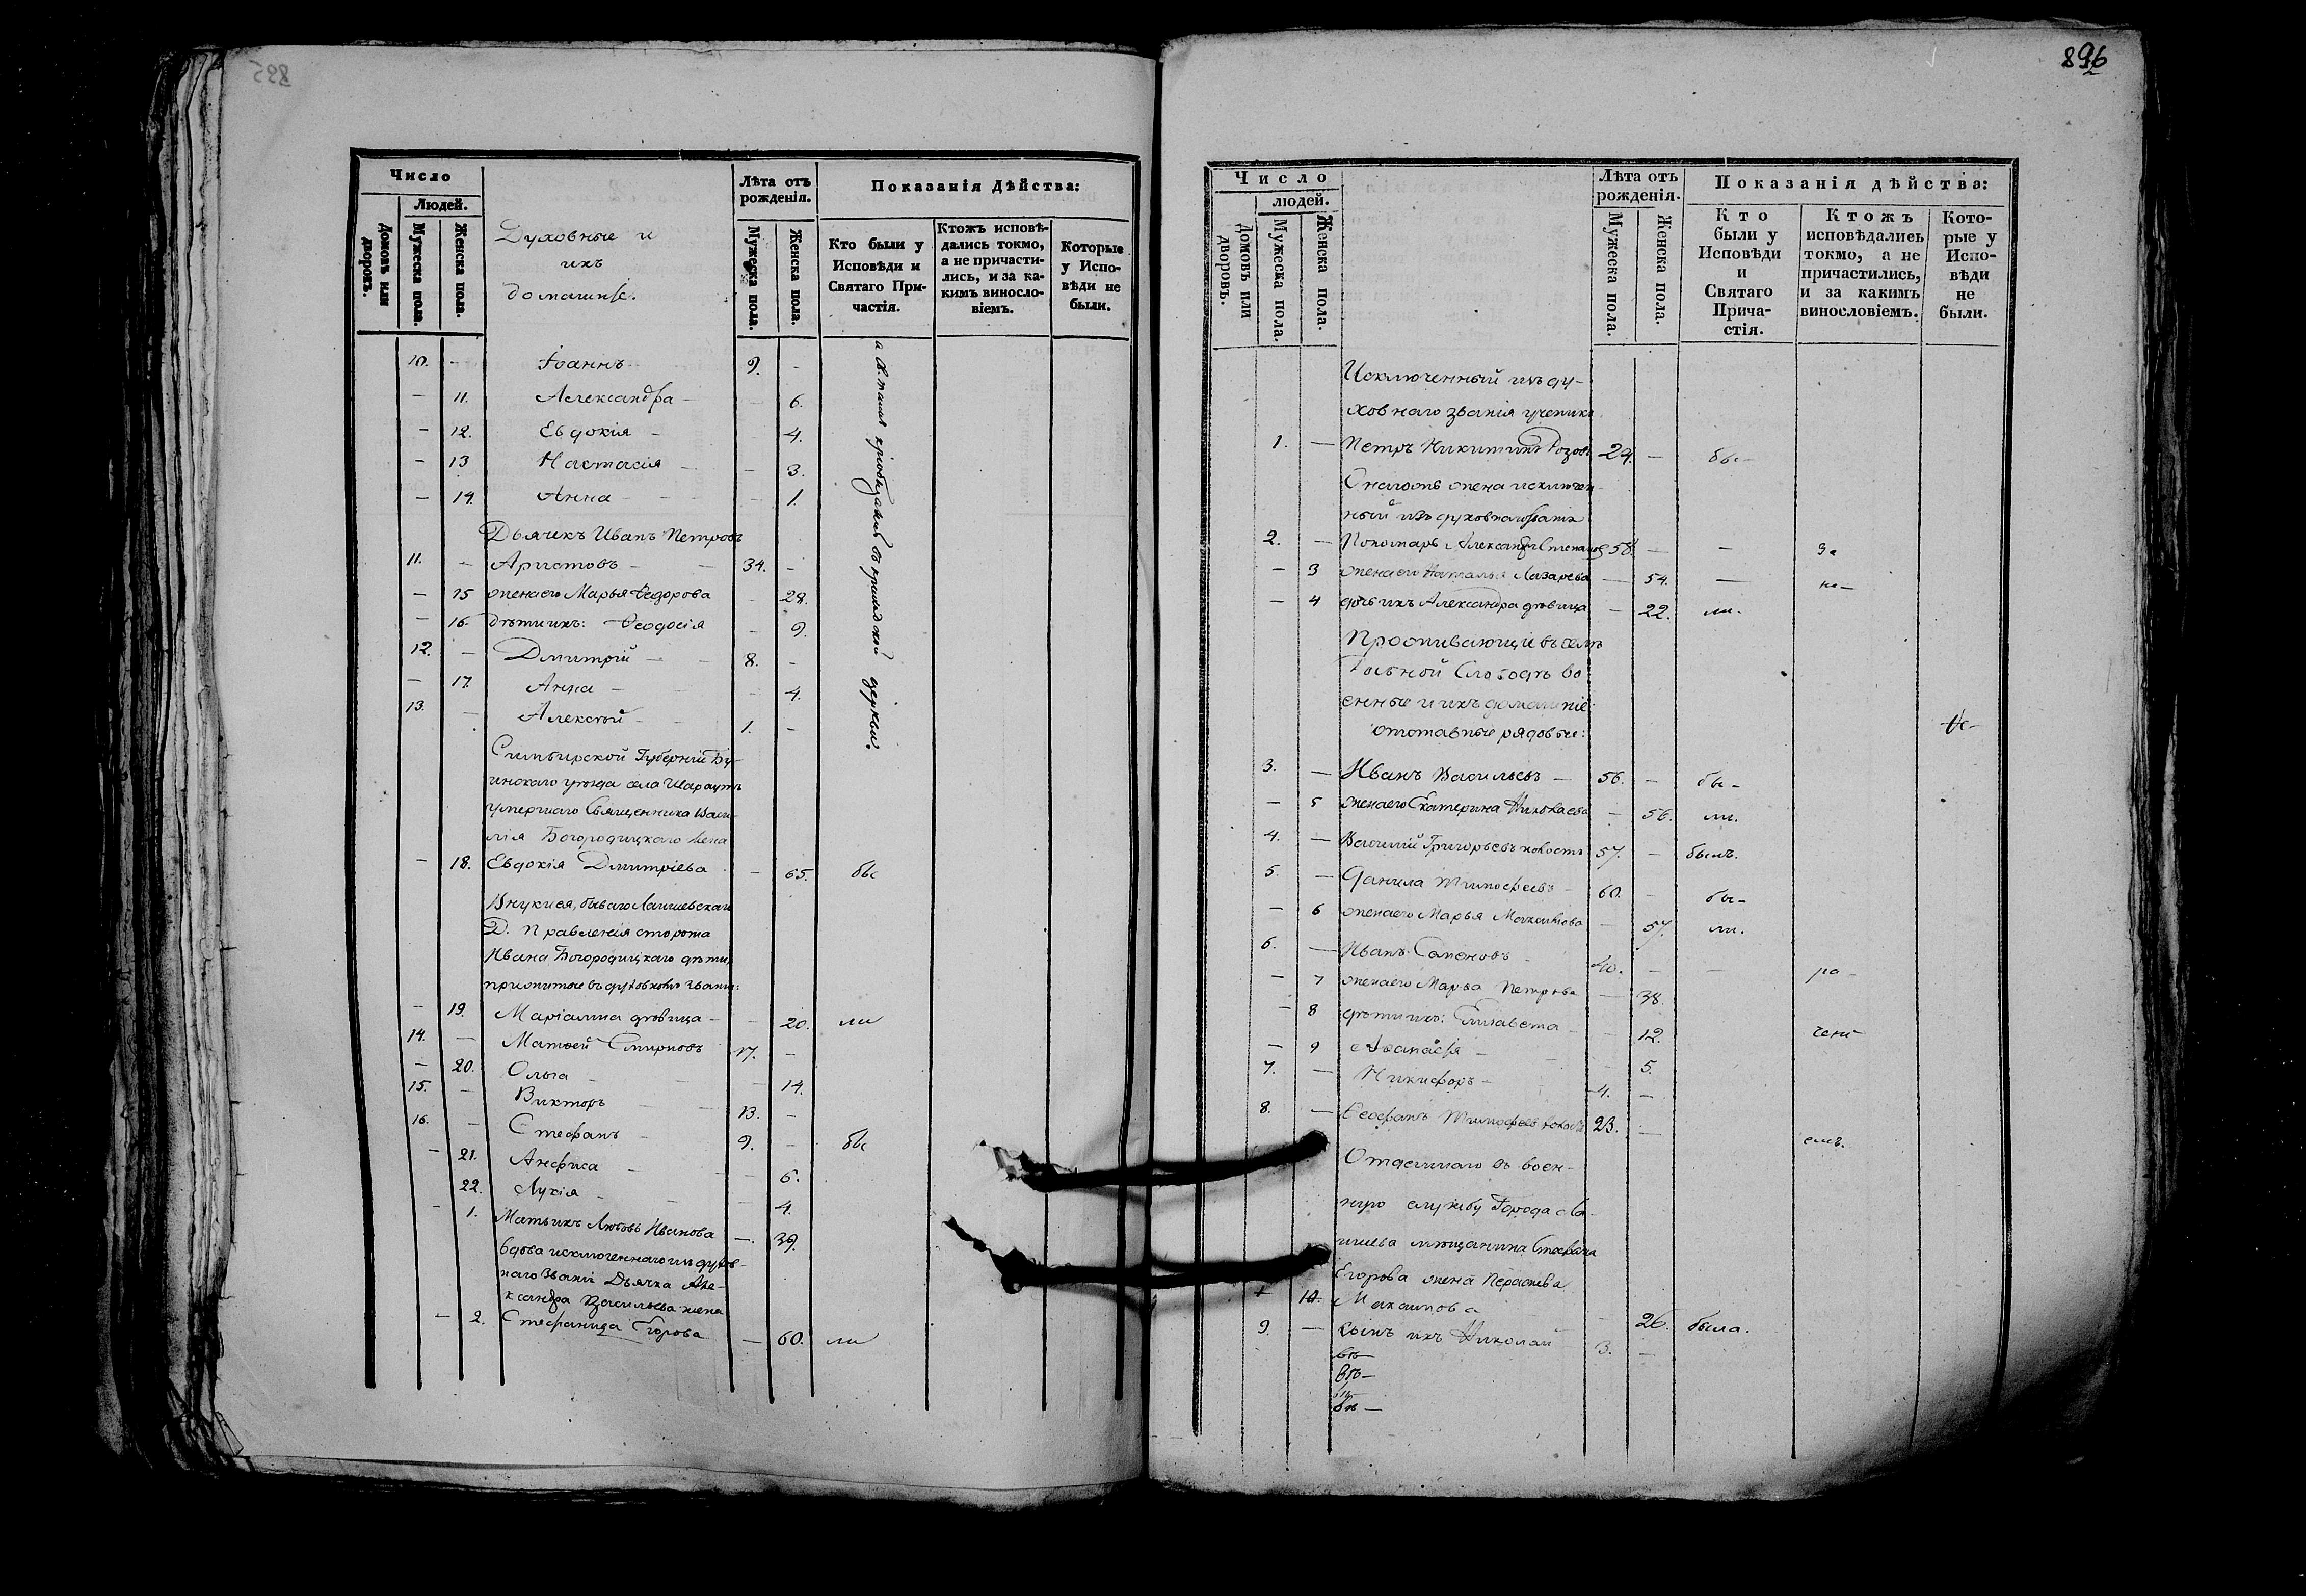 895
Число
Людей.
Домовъ или дворовъ.
Мужеска пола.
Женска пола.
Духовные и
ихъ
домашніе.
Лѣта отъ рожденія.
Мужеска пола.
Женска пола.
Показанія Дѣйства:
Кто были у Исповѣди и Святаго Причастія.
Ктожъ исповѣдались токмо, а не причастились, и за какимъ винословіемъ.
Которые у Исповѣди не были.
10. — Іоаннъ 9. -
— 11. Александра — 6.
— 12. Евдокія — 4.
— 13 Настасія — 3.
— 14. Анна — 1.
Дьячекъ Иванъ Петровъ
11. — Аристовъ — 34. -
— 15 жена его Марья Ѳедорова - 28.
— 16. дѣти ихъ: Ѳеодосія - 9.
12. — Дмитрій — 8. -
— 17. Анна — 4.
13. — Алексѣй — 1. -
Симбирской Губерніи Бу-
инскаго уѣзда села
умершаго Священника Васи-
лія Богородицкаго жена
— 18. Евдокія Дмитріева - 65. бы
Внуки ея, бывшаго Лаишевскаго
Д. Правленія сторожа
Ивана Богородицкаго дѣти,
— 19. дѣвица — 20. ли
14. — Матвей Смирновъ 17. -
— 20. Ольга — 14.
15. — Викторъ 13. -
16. — Стефанъ — 9. - бы
— 21. Анфиса — 6.
22. Лукія — 4.
- 1. Мать ихъ Любовь Иванова — 39.
вдова исключеннаго изъ духов-
наго званія Дьячка Але-
ксандра Васильева жена
— 2. Стефанида Егорова — 60. ли
церкви.
896
Число
людей.
Домовъ или дворовъ.
Мужеска пола.
Женска пола.
Лѣта отъ рожденія.
Мужеска пола.
Женска пола.
Показанія дѣйства:
Кто были у Исповѣди и Святаго Причастія.
Ктожъ исповѣдались токмо, а не причастились, и за какимъ винословіемъ.
Которые у Исповѣди не были.
Исключенный изъ ду-
ховнаго званія ученикъ
1. — Петръ Никитинъ Розовъ 24. — бы-
жена исключен-
ный изъ духовнаго званія
2. — Пономарь Александръ Степановъ 58. — —
— 3 жена его Наталья Лазарева — 54. —
— 4 дочь ихъ Александра дѣвица — 22. ли.
Проживающіе въ селѣ
Слободѣ во
енные и ихъ домашніе:
отставные рядовые:
3. — Иванъ Васильевъ — 56. - бы-
— 5 жена его Екатерина Николаева — 56. ли.
4. — Василій Григорьевъ холостъ 57. - былъ.
5. — Данила Тимофеевъ — 60. - бы-
— 6 жена его Марья Максимова — 57. ли.
6. — Иванъ Семеновъ 40. — — ра-
— 7 жена его Марѳа Петрова — 38.
— 8 дѣти ихъ: Елизавета — 12.
— 9 Аѳанасія — 5.
7. — Никифоръ — 4. —
8. — Ѳеофанъ Тимофеевъ холостъ 23. —
Отданнаго въ воен-
ную службу Города Ла-
ишева мѣщанина Стефана
Егорова жена
10. Максимова - 26. была.
9. — сынъ ихъ Николай 3. —